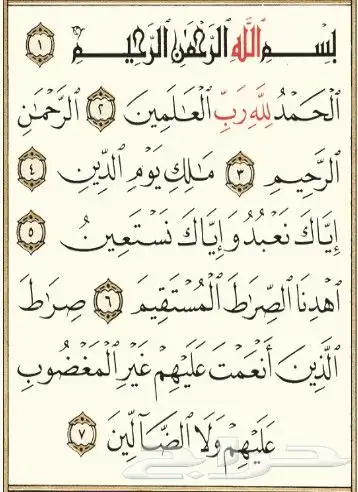 بِسْمِ ٱللَّهِ ٱلرَّحْمَٰنِ ٱلرَّحِيمِ ١
ٱلْحَمْدُ لِلَّهِ رَبِّ ٱلْعَٰلَمِينَ ٢ ٱلرَّحْمَٰنِ
ٱلرَّحِيمِ ٣ مَٰلِكِ يَوْمِ ٱلدِّينِ ٤
إِيَّاكَ نَعْبُدُ وَإِيَّاكَ نَسْتَعِينُ ٥
ٱهْدِنَا ٱلصِّرَٰطَ ٱلْمُسْتَقِيمَ ٦ صِرَٰطَ
ٱلَّذِينَ أَنْعَمْتَ عَلَيْهِمْ غَيْرِ ٱلْمَغْضُوبِ
عَلَيْهِمْ وَلَا ٱلضَّآلِّينَ ٧
حراج